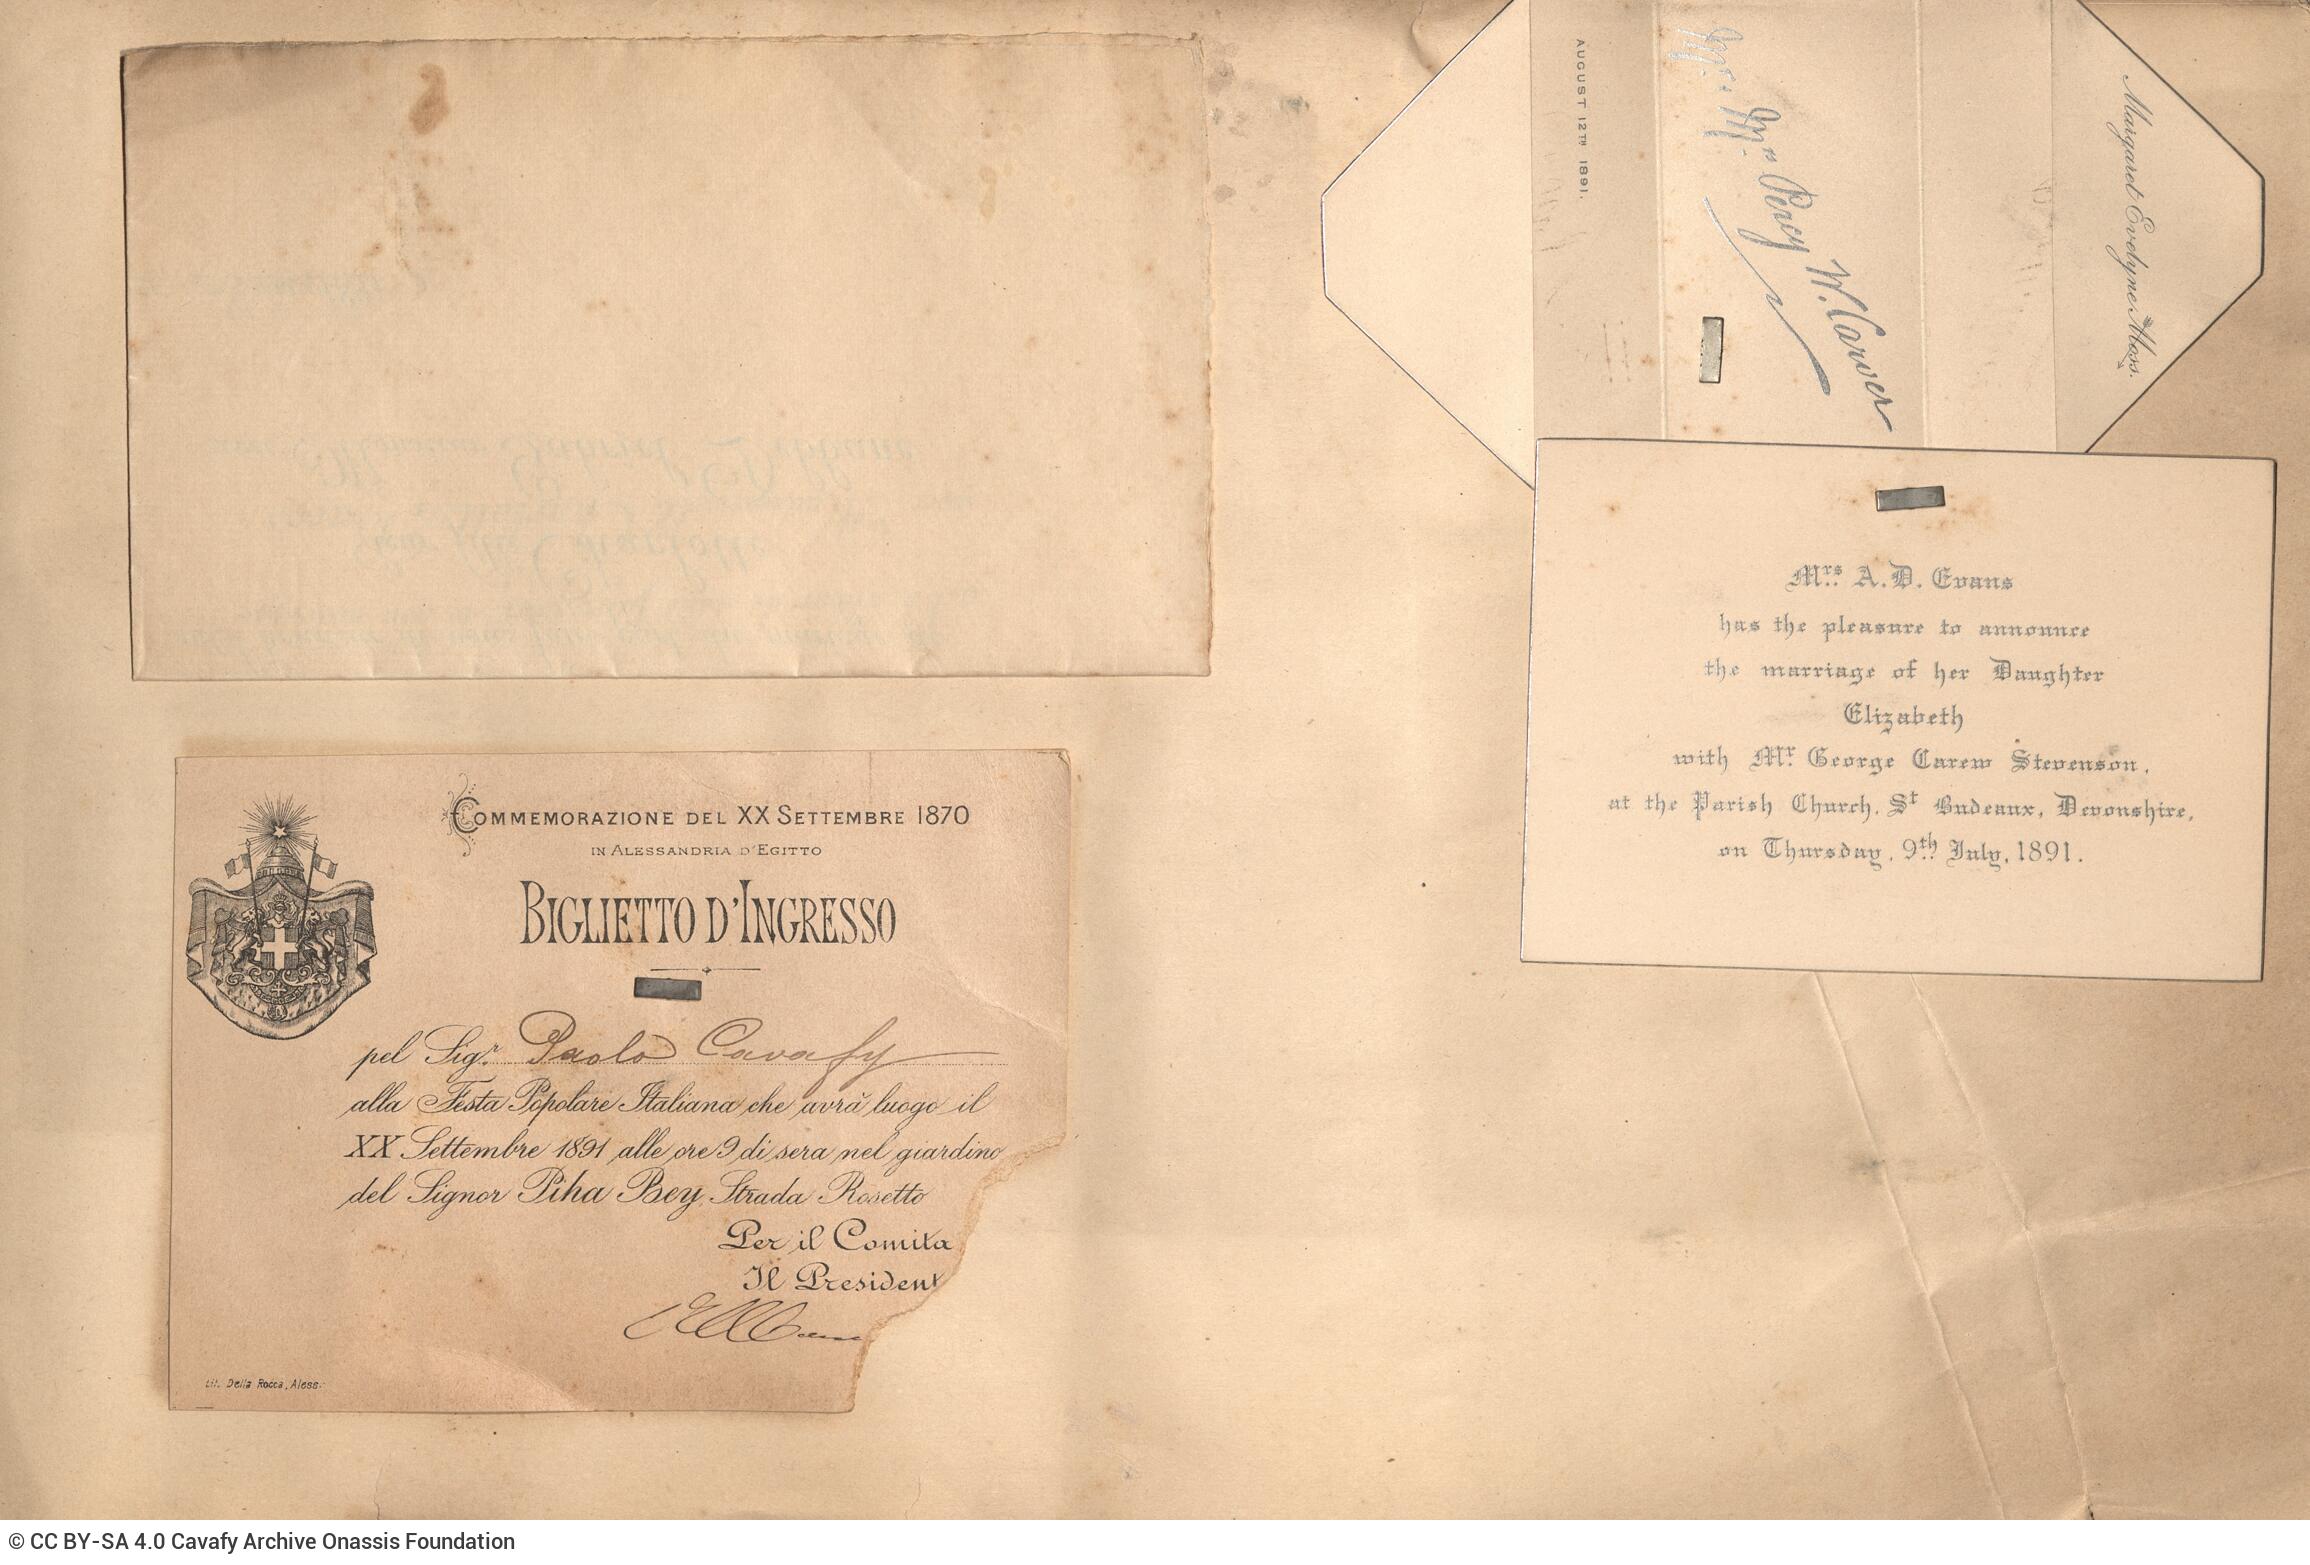 AUGUST 12TH 1891.
Mr. & Mrs. Percy W. Carver
Margaret Evelyne Moss.
Mrs. A.D. Evans
has the pleasure to announce
the marriage of her Daughter
Elizabeth
with Mr. George Carew Stevenson,
at the Parish Church, St Budeaux, Devonshire,
on Thursday, 9th July, 1891.
COMMEMORAZIONE DEL XX SETTEMBRE 1870
IN ALESSANDRIA D'EGITTO
BIGLIETTO D'INGRESSO
pel Sigr. Paolo Cavafy
alla Festa Popolare Italiana che avrà luogo il
XX Settembre 1891 alle ore 9 di sera nel giardino
del Signor Piha Bey, Strada Rosetto
Per il Comita
Il President
Lit. Della Rocca, Aless.
Monsieur Gabriel Debbané
leur fille Charlotte
© CC BY-SA 4.0 Cavafy Archive Onassis Foundation